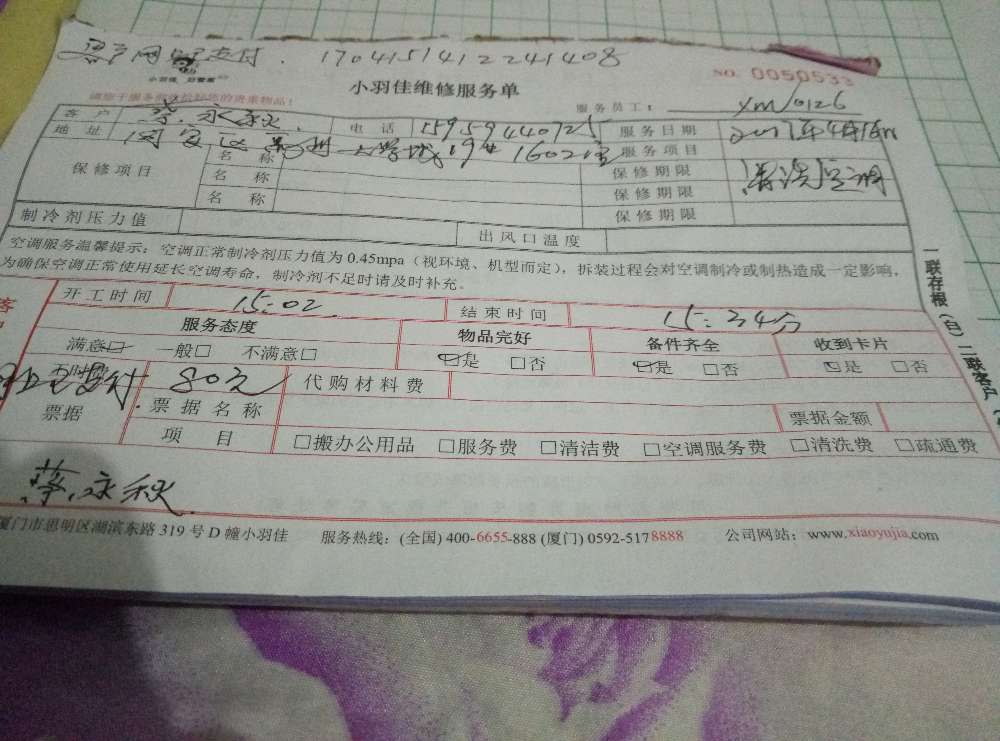 网 支付. 1704151412241408
小羽佳 好管家
小羽佳维修服务单
NO. 0050533
服务员工: xm/0126
客户 蔡永秋 电话 15959440725 服务日期 2017年4月16日
地址 19# 1602室 服务项目 清洗空调
保修项目 名称 保修期限
名称 保修期限
名称 保修期限
制冷剂压力值 出风口温度
空调服务温馨提示: 空调正常制冷剂压力值为 0.45mpa (视环境、机型而定), 拆装过程会对空调制冷或制热造成一定影响,
为确保空调正常使用延长空调寿命, 制冷剂不足时请及时补充。
开工时间 15:02 结束时间 15:34分
服务态度 物品完好 备件齐全 收到卡片
满意☑ 一般□ 不满意□ ☑是 □否 ☑是 □否 ☑是 □否
付. 80元 代购材料费
票据 票据名称 票据金额
项目 □搬办公用品 □服务费 □清洁费 □空调服务费 □清洗费 □疏通费
蔡永秋
厦门市思明区湖滨东路 319 号 D 幢小羽佳 服务热线: (全国) 400-6655-888 (厦门) 0592-5178888 公司网站: www.xiaoyujia.com
一联存根 (白) 二联客户